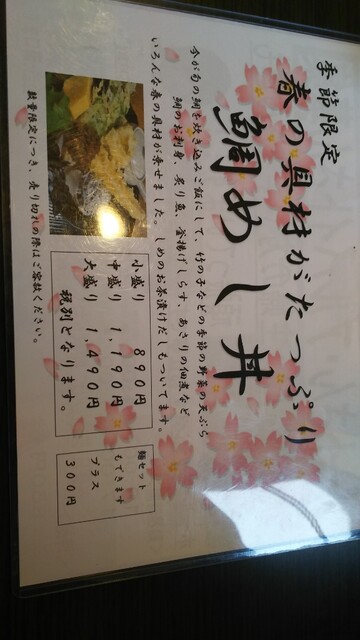 季節限定
春の具材がたっぷり
鯛めし丼
今が旬の鯛を炊き込みご飯にして、竹の子などの季節の野菜の天ぷら
鯛のお刺身、炙り魚、釜揚げしらす、あさりの佃煮など
いろんな春の具材が乗せました。しめのお茶漬けだしもついてます。
小盛り 890円
中盛り 1,190円
大盛り 1,490円
税別となります。
麺セット
もできます
プラス
300円
数量限定につき、売り切れの際はご容赦ください。